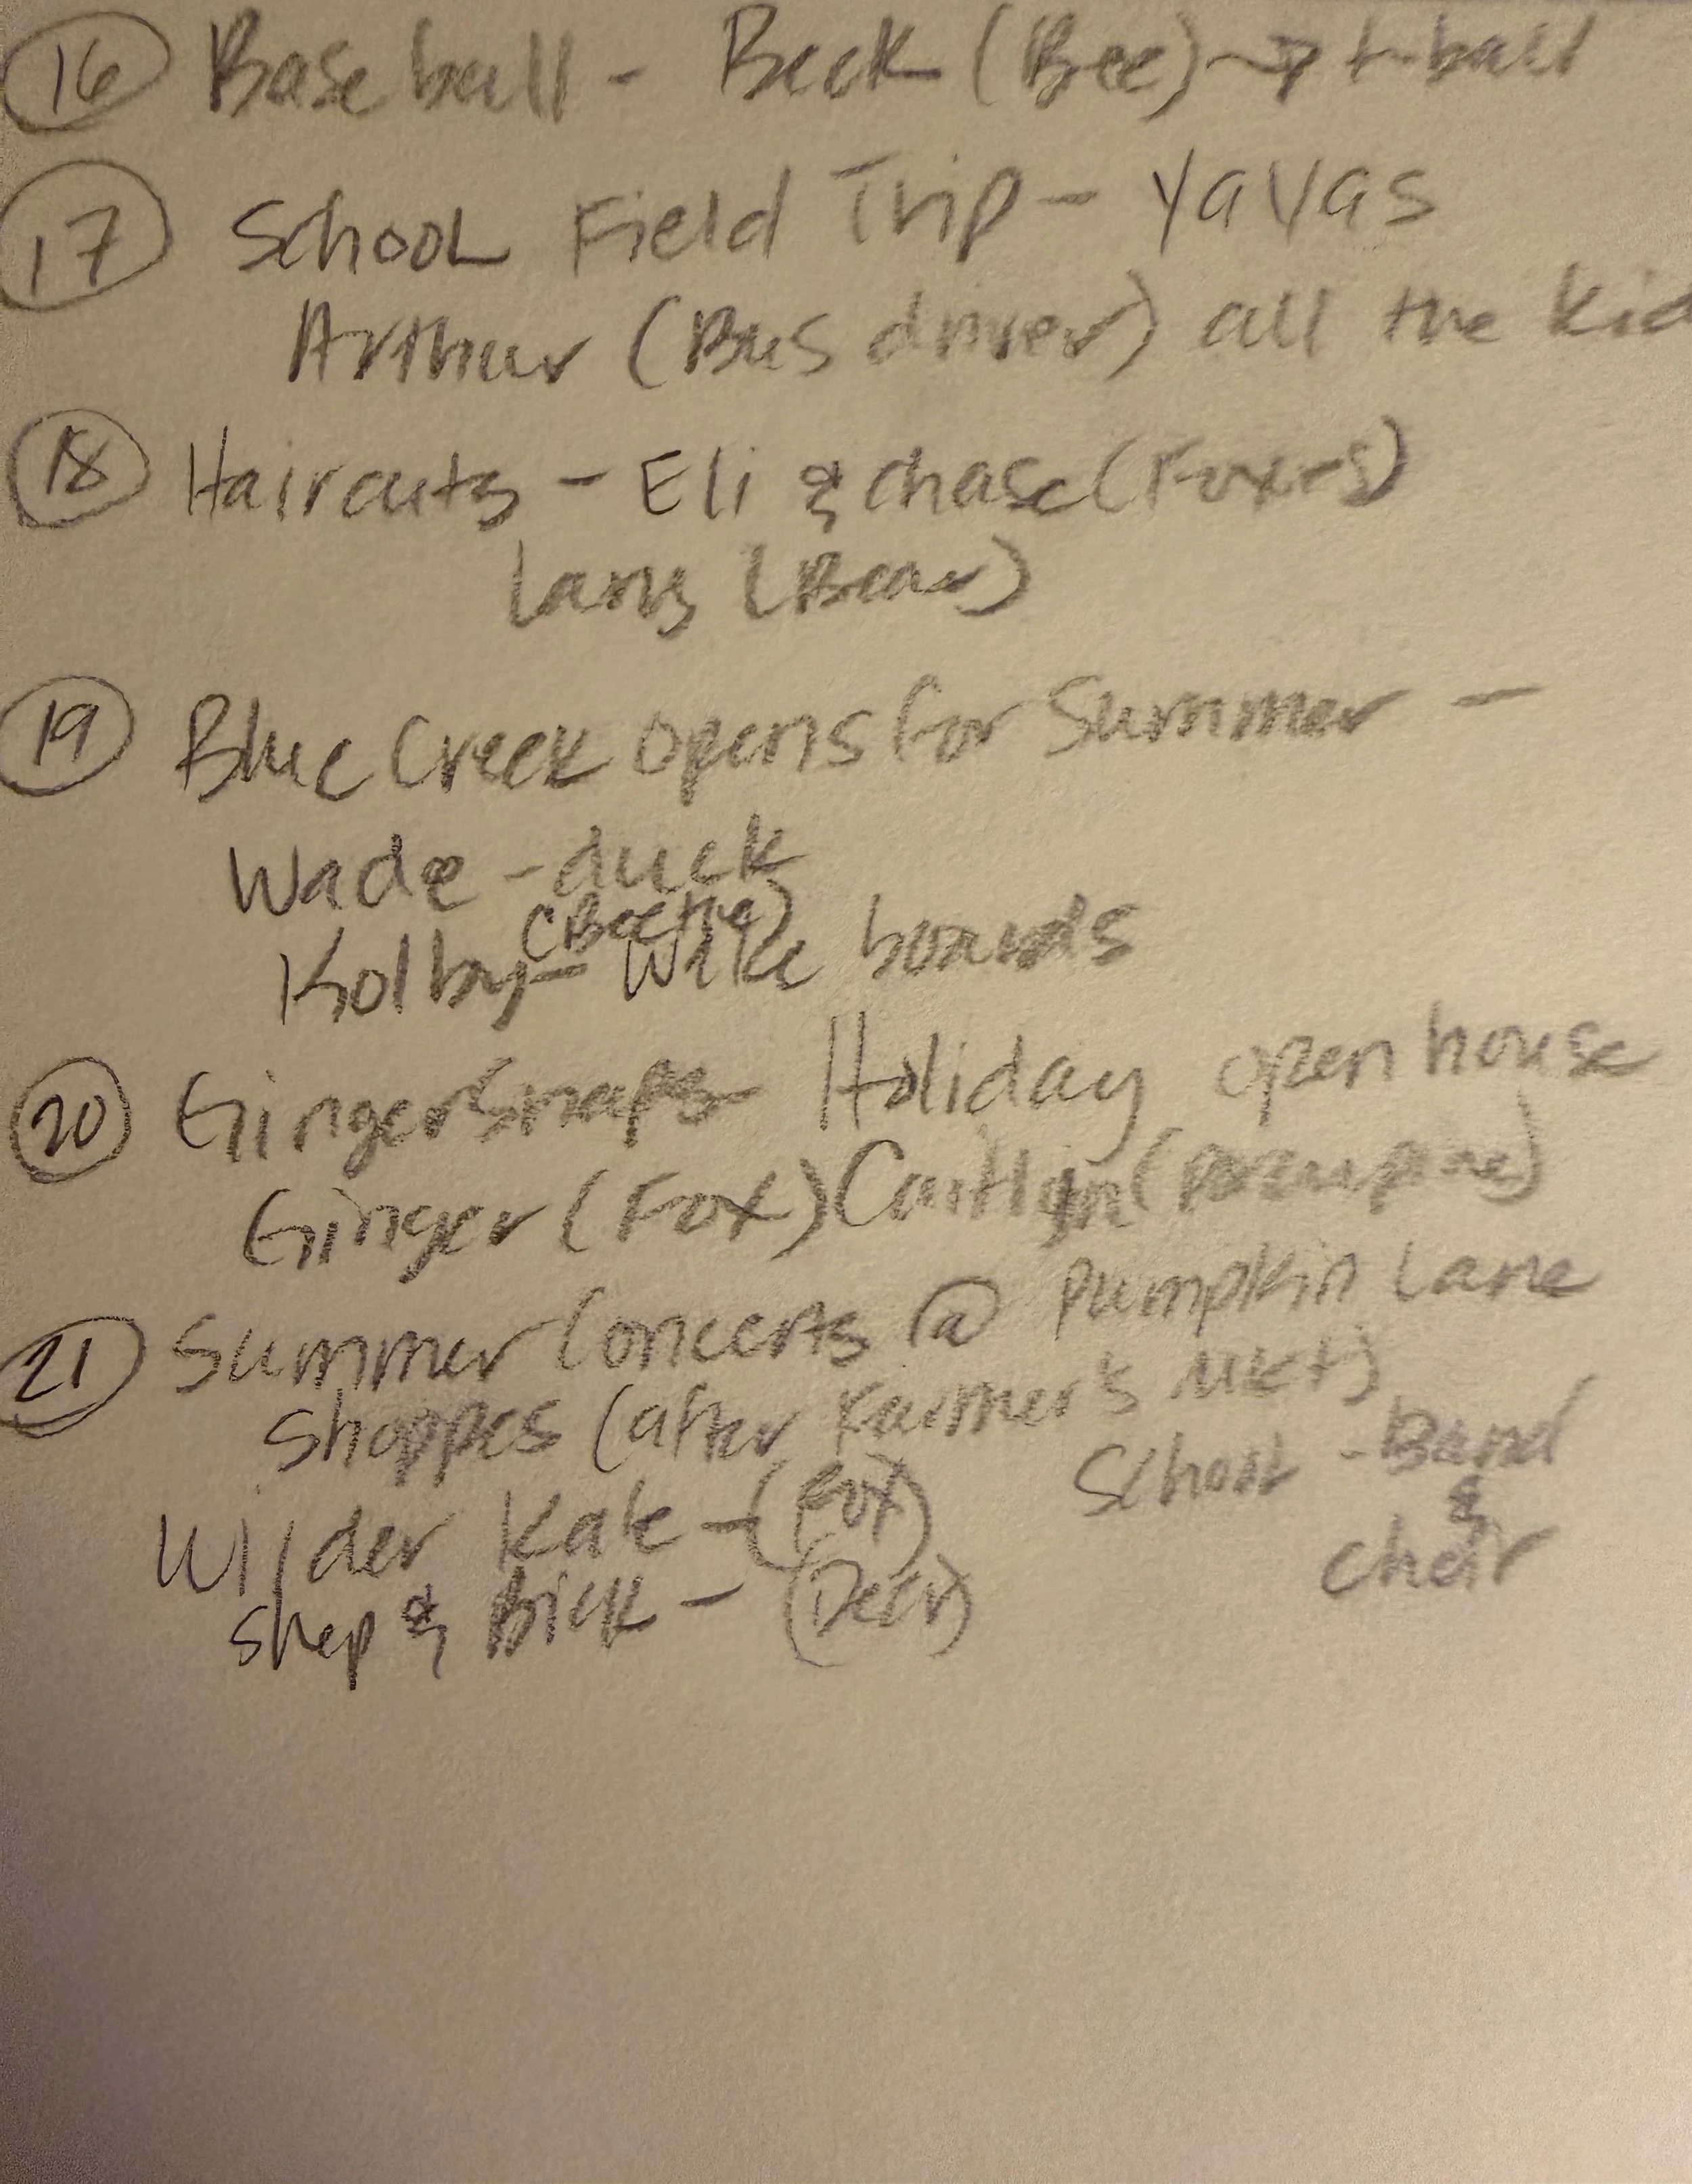 16 Baseball - Beck (Bee) → t-ball
17 School Field Trip - Yayas
Arthur (Bus driver) all the kid
18 Haircuts - Eli & Chase (Foxes)
Larry (Bear)
19 Blue Creek opens for Summer -
Wade - duck
(Beetle)
Kolby - Wake boards
20 GingerSnaps Holiday open house
Ginger (Fox) Caitlyn (porcupine)
21 Summer Concerts @ Pumpkin Lane
Shoppes (after Farmer's Mkt)
School - Band
&
choir
Wilder Kale - (Fox)
Shep & Bick - (Deer)